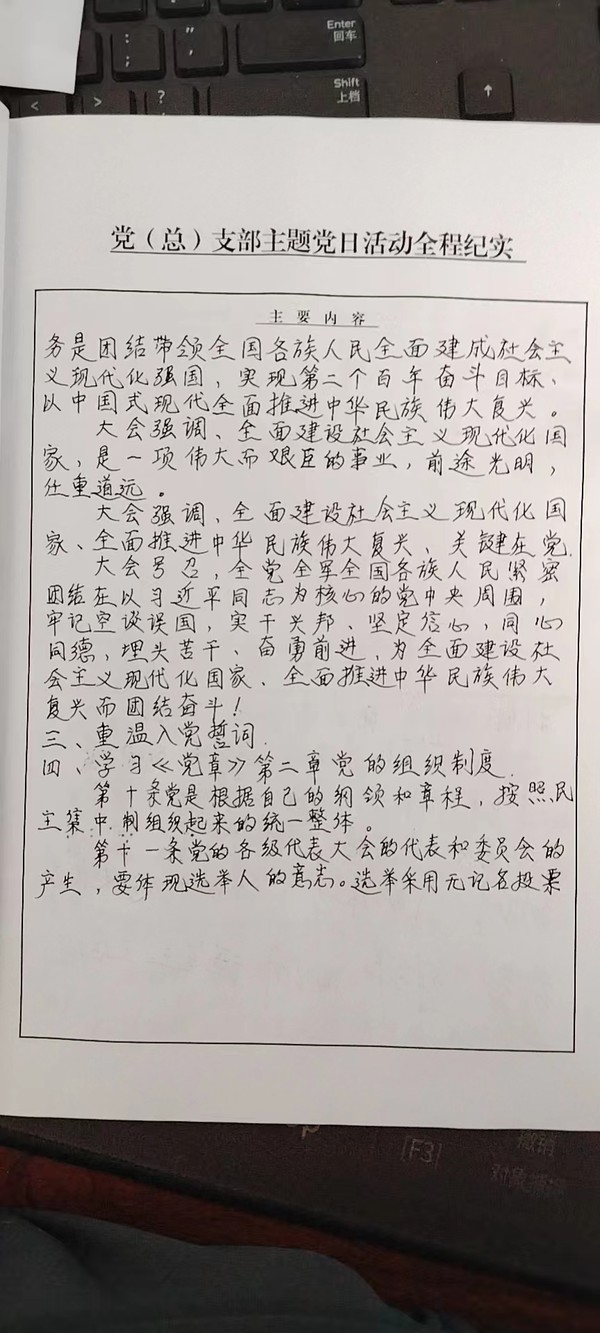 Enter
回车
Shift
上档
: ;
< > ?
↑
党（总）支部主题党日活动全程纪实
主要内容
务是团结带领全国各族人民全面建成社会主
义现代化强国，实现第二个百年奋斗目标、
以中国式现代全面推进中华民族伟大复兴。
大会强调、全面建设社会主义现代化国
家，是一项伟大而艰巨的事业，前途光明，
任重道远。
大会强调、全面建设社会主义现代化国
家、全面推进中华民族伟大复兴、关键在党.
大会号召，全党全军全国各族人民紧密
团结在以习近平同志为核心的党中央周围，
牢记空谈误国，实干兴邦、坚定信心，同心
同德，埋头苦干、奋勇前进，为全面建设社
会主义现代化国家、全面推进中华民族伟大
复兴而团结奋斗！
三、重温入党誓词.
四、学习《党章》第二章党的组织制度.
第十条党是根据自己的纲领和章程，按照民
主集中制组织起来的统一整体。
第十一条党的各级代表大会的代表和委员会的
产生，要体现选举人的意志。选举采用无记名投票
[F3]
撤销